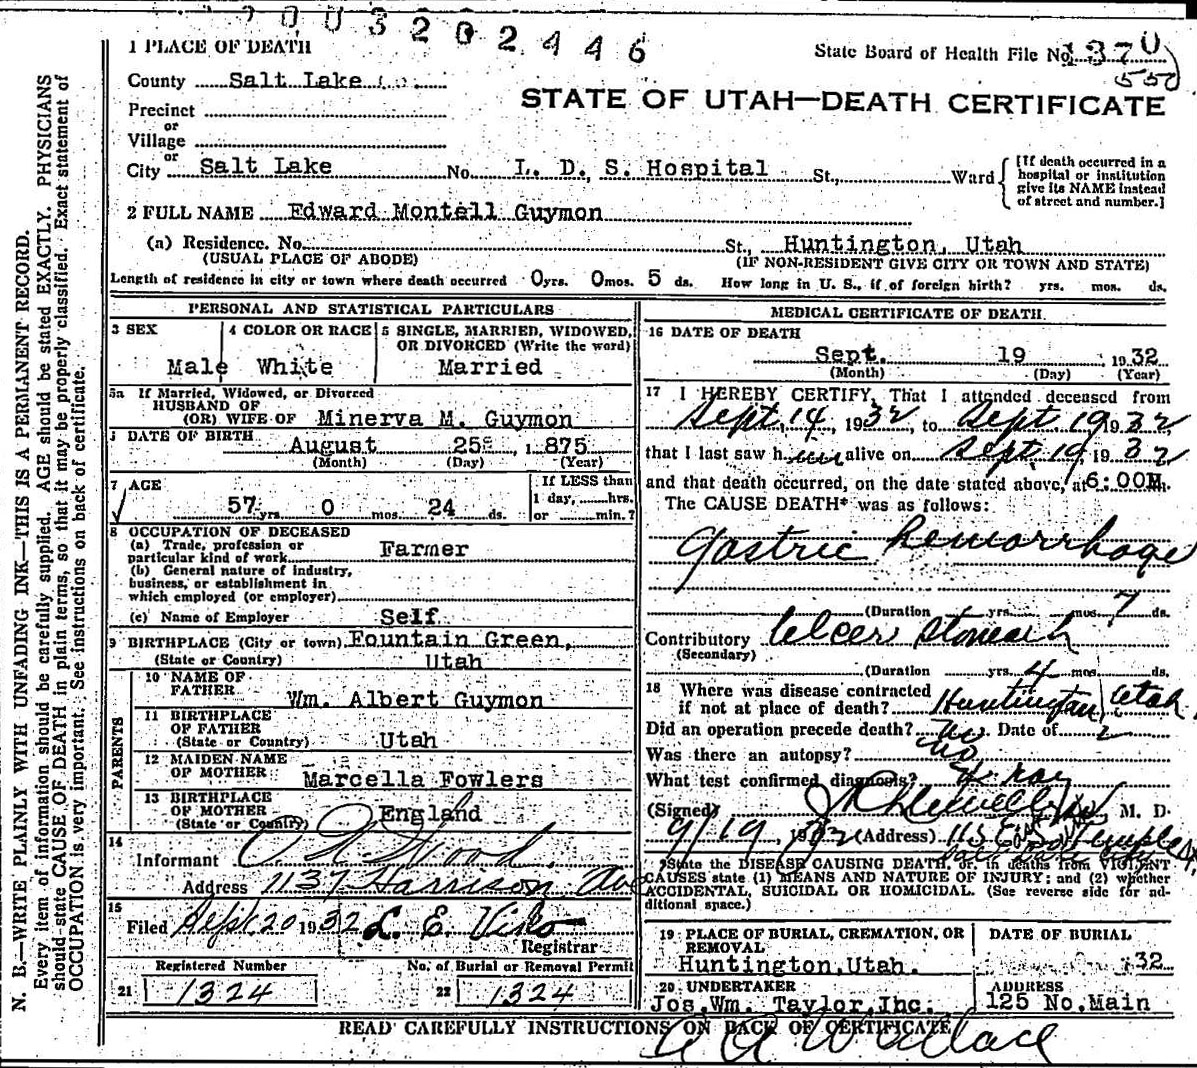 7003202446
1 PLACE OF DEATH
State Board of Health File No. 1370
550
County Salt Lake Co.
STATE OF UTAH—DEATH CERTIFICATE
Precinct
or
Village
or
City Salt Lake No. L. D. S. Hospital St., Ward
[If death occurred in a
hospital or institution
give its NAME instead
of street and number.]
2 FULL NAME Edward Montell Guymon
(a) Residence. No. St., Huntington, Utah
(USUAL PLACE OF ABODE) (IF NON-RESIDENT GIVE CITY OR TOWN AND STATE)
Length of residence in city or town where death occurred 0 yrs. 0 mos. 5 ds. How long in U. S., if of foreign birth? yrs. mos. ds.
PERSONAL AND STATISTICAL PARTICULARS
3 SEX
Male
4 COLOR OR RACE
White
5 SINGLE, MARRIED, WIDOWED,
OR DIVORCED (Write the word)
Married
5a If Married, Widowed, or Divorced
HUSBAND OF
(OR) WIFE OF Minerva M. Guymon
DATE OF BIRTH
August 25 1875
(Month) (Day) (Year)
7 AGE
57 yrs. 0 mos. 24 ds.
If LESS than
1 day, hrs.
or min.?
8 OCCUPATION OF DECEASED
(a) Trade, profession or
particular kind of work Farmer
(b) General nature of industry,
business, or establishment in
which employed (or employer)
(c) Name of Employer Self
9 BIRTHPLACE (City or town) Fountain Green,
(State or Country) Utah
PARENTS
10 NAME OF
FATHER Wm. Albert Guymon
11 BIRTHPLACE
OF FATHER
(State or Country) Utah
12 MAIDEN NAME
OF MOTHER Marcella Fowlers
13 BIRTHPLACE
OF MOTHER
(State or Country) England
14
Informant Wood
Address 1137 Harrison Ave
15
Filed Sept 20 1932 L. E. Viko
Registrar
Registered Number No. of Burial or Removal Permit
21 1324 22 1324
MEDICAL CERTIFICATE OF DEATH
16 DATE OF DEATH
Sept. 19 1932
(Month) (Day) (Year)
17 I HEREBY CERTIFY, That I attended deceased from
Sept. 14, 1932, to Sept. 19 1932
that I last saw him alive on Sept. 19, 1932
and that death occurred, on the date stated above, at 6:00 M.
The CAUSE DEATH* was as follows:
Gastric hemorrhage
(Duration yrs. mos. 7 ds.
Contributory Ulcer Stomach
(Secondary)
(Duration yrs. 4 mos. ds.
18 Where was disease contracted
if not at place of death? Huntington, Utah
Did an operation precede death? No. Date of
Was there an autopsy? No
What test confirmed diagnosis? X ray
(Signed) M. D.
9/19 1932 (Address) 115 E So Temple
*State the DISEASE CAUSING DEATH, or, in deaths from VIOLENT
CAUSES state (1) MEANS AND NATURE OF INJURY; and (2) whether
ACCIDENTAL, SUICIDAL OR HOMICIDAL. (See reverse side for ad-
ditional space.)
19 PLACE OF BURIAL, CREMATION, OR
REMOVAL
Huntington, Utah.
DATE OF BURIAL
32
20 UNDERTAKER
Jos. Wm. Taylor, Inc.
ADDRESS
125 No. Main
READ CAREFULLY INSTRUCTIONS ON BACK OF CERTIFICATE
A A Wallace
N. B.—WRITE PLAINLY WITH UNFADING INK—THIS IS A PERMANENT RECORD.
Every item of information should be carefully supplied. AGE should be stated EXACTLY. PHYSICIANS
should state CAUSE OF DEATH in plain terms, so that it may be properly classified. Exact statement of
OCCUPATION is very important. See instructions on back of certificate.